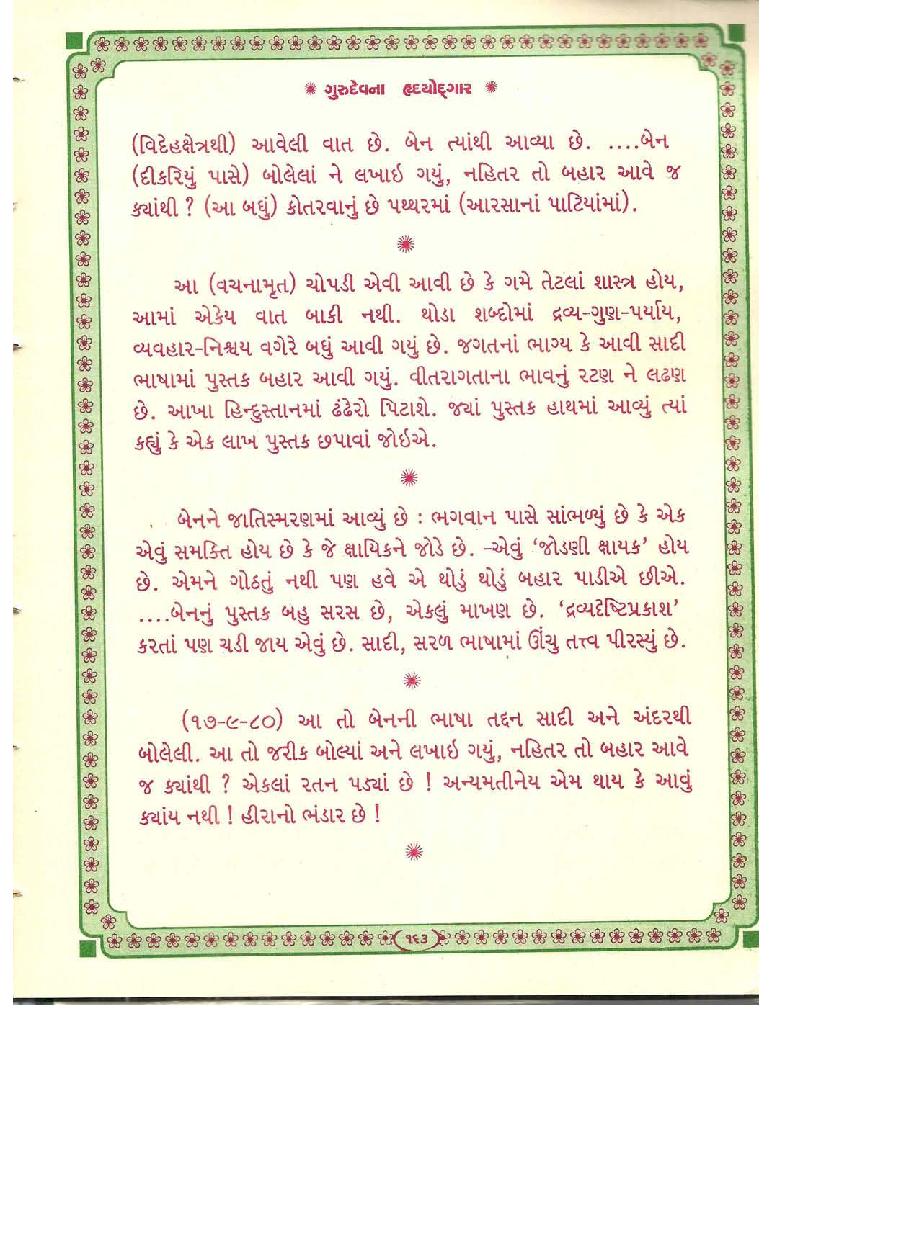 ગુરુદેવના હૃદયોદ્‌ગાર
(વિદેહક્ષેત્રથી) આવેલી વાત છે. બેન ત્યાંથી આવ્યા છે. ....બેન
(દીકરિયું પાસે) બોલેલાં ને લખાઇ ગયું, નહિતર તો બહાર આવે જ
ક્યાંથી ? (આ બધું) કોતરવાનું છે પથ્થરમાં (આરસાનાં પાટિયાંમાં).
આ (વચનામૃત) ચોપડી એવી આવી છે કે ગમે તેટલાં શાસ્ત્ર હોય,
આમાં એકેય વાત બાકી નથી. થોડા શબ્દોમાં દ્રવ્ય-ગુણ-પર્યાય,
વ્યવહાર-નિશ્ચય વગેરે બધું આવી ગયું છે. જગતનાં ભાગ્ય કે આવી સાદી
ભાષામાં પુસ્તક બહાર આવી ગયું. વીતરાગતાના ભાવનું રટણ ને લઢણ
છે. આખા હિન્દુસ્તાનમાં ઢંઢેરો પિટાશે. જ્યાં પુસ્તક હાથમાં આવ્યું ત્યાં
કહ્યું કે એક લાખ પુસ્તક છપાવાં જોઇએ.
બેનને જાતિસ્મરણમાં આવ્યું છે : ભગવાન પાસે સાંભળ્યું છે કે એક
એવું સમકિત હોય છે કે જે ક્ષાયિકને જોડે છે. -એવું ‘જોડણી ક્ષાયક’ હોય
છે. એમને ગોઠતું નથી પણ હવે એ થોડું થોડું બહાર પાડીએ છીએ.
....બેનનું પુસ્તક બહુ સરસ છે, એકલું માખણ છે. ‘દ્રવ્યદૃષ્ટિપ્રકાશ’
કરતાં પણ ચડી જાય એવું છે. સાદી, સરળ ભાષામાં ઊંચુ તત્ત્વ પીરસ્યું છે.
(૧૭-૯-૮૦) આ તો બેનની ભાષા તદ્દન સાદી અને અંદરથી
બોલેલી. આ તો જરીક બોલ્યાં અને લખાઇ ગયું, નહિતર તો બહાર આવે
જ ક્યાંથી ? એકલાં રતન પડ્યાં છે ! અન્યમતીનેય એમ થાય કે આવું
ક્યાંય નથી ! હીરાનો ભંડાર છે !
૧૬૩